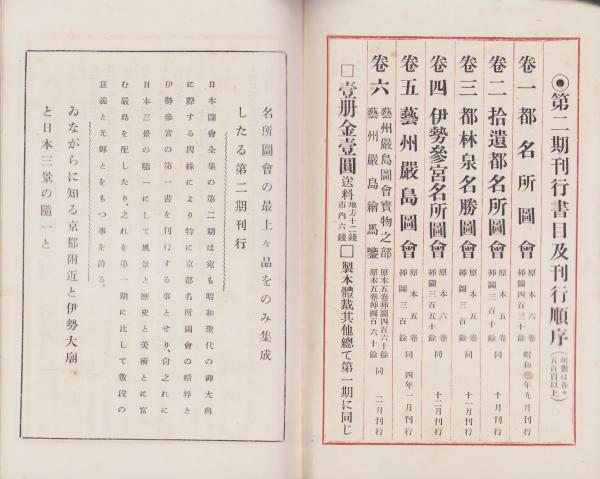 ◉第二期刊行書目及刊行順序(頁數は各々五百頁以上)
卷一 都名所圖會 原本六卷 揷圖四百三十餘 昭和三年九月刊行
卷二 拾遺都名所圖會 原本五卷 揷圖三百十餘 同 十月刊行
卷三 都林泉名勝圖會 原本五卷 揷圖三百十餘 同 十一月刊行
卷四 伊勢參宮名所圖會 原本六卷 揷圖三百五十餘 同 十二月刊行
卷五 藝州嚴島圖會 原本五卷 揷圖三百餘 同 四年一月刊行
卷六 藝州嚴島圖會寶物之部 原本五卷揷圖四百六十餘
藝州嚴島繪馬鑒 原本五卷揷圖百六十餘 同 二月刊行
□壹册金壹圓 送料 地方十二錢 市内六錢 □製本體裁其他總て第一期に同じ
名所圖會の最上々品をのみ集成
したる第二期刊行
日本圖會全集の第二期は宛も昭和聖代の御大典
に際する因緣により特に京都名所圖會の精粹と
伊勢參宮の第一書を刊行する事とせり、尙之れに
日本三景の隨一にして風景と歷史と美術とに富
む嚴島を配したり、之れを第一期に比して數段の
意義と光輝とをもつ事を誇る。
ゐながらに知る京都附近と伊勢大廟
と日本三景の隨一と